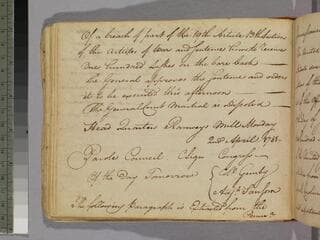 Of a breach of part of the 10th Article 13th Section
of the Articles of War and Sentence him to receive
One hundred Lashes on his bare back —
The General approves the sentence and orders
it to be executed this afternoon —
The General Court Martial is dissolved
Head Quarters Ramseys Mill Monday
2nd April 1781
Parole Council C. Sign Congress
Of the Day Tomorrow
Majr
The following Paragraph is Extracted from the